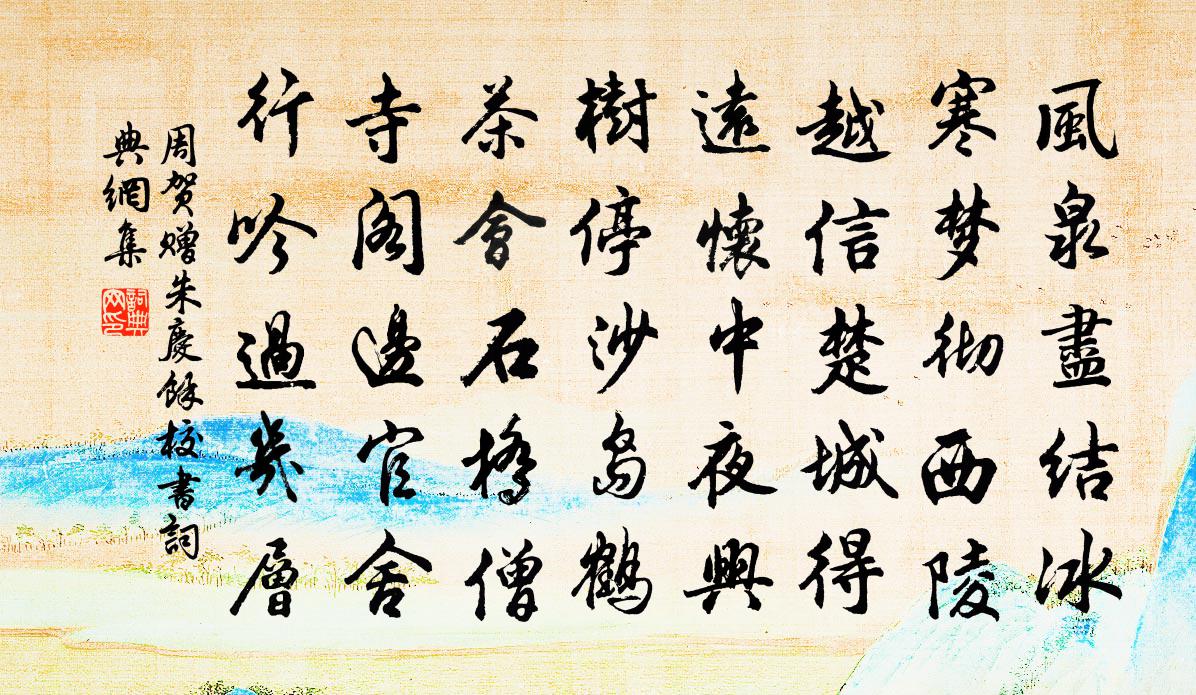 風泉盡結冰
寒梦彻西陵
越信楚城得
遠懷中夜興
樹停沙岛鶴
茶會石橋僧
寺阁邊官舍
行吟過幾層
周贺赠朱慶餘校書詞
典網集
詞典
网印